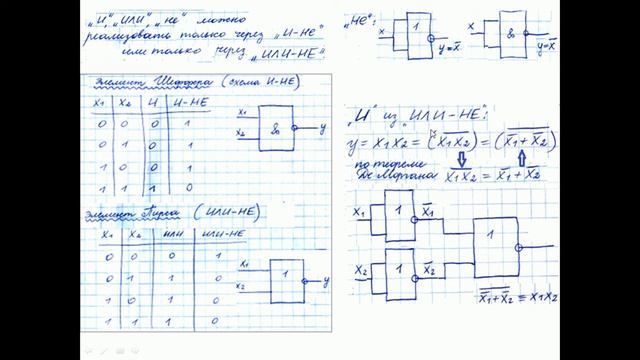 „И", „ИЛИ", „не" можно
реализовать только через „И-НЕ"
или только через „ИЛИ-НЕ"
Элемент Шеффера (схема И-НЕ)
X1 X2 И И-НЕ
0 0 0 1
0 1 0 1
1 0 0 1
1 1 1 0
x1
x2
&
y
Элемент Пирса (ИЛИ-НЕ)
X1 X2 ИЛИ ИЛИ-НЕ
0 0 0 1
0 1 1 0
1 0 1 0
1 1 1 0
x1
x2
1
y
„НЕ":
x 1 y=x̅
x & y=x̅
„И" из „ИЛИ-НЕ":
y = x1x2 = (x̅1̅x̅2̅) = (x̅1 + x̅2)
по теореме
Де Моргана x̅1̅x̅2̅ = x̅1 + x̅2
x1 1 x̅1
1
x2 1 x̅2
x̅1 + x̅2 = x1x2